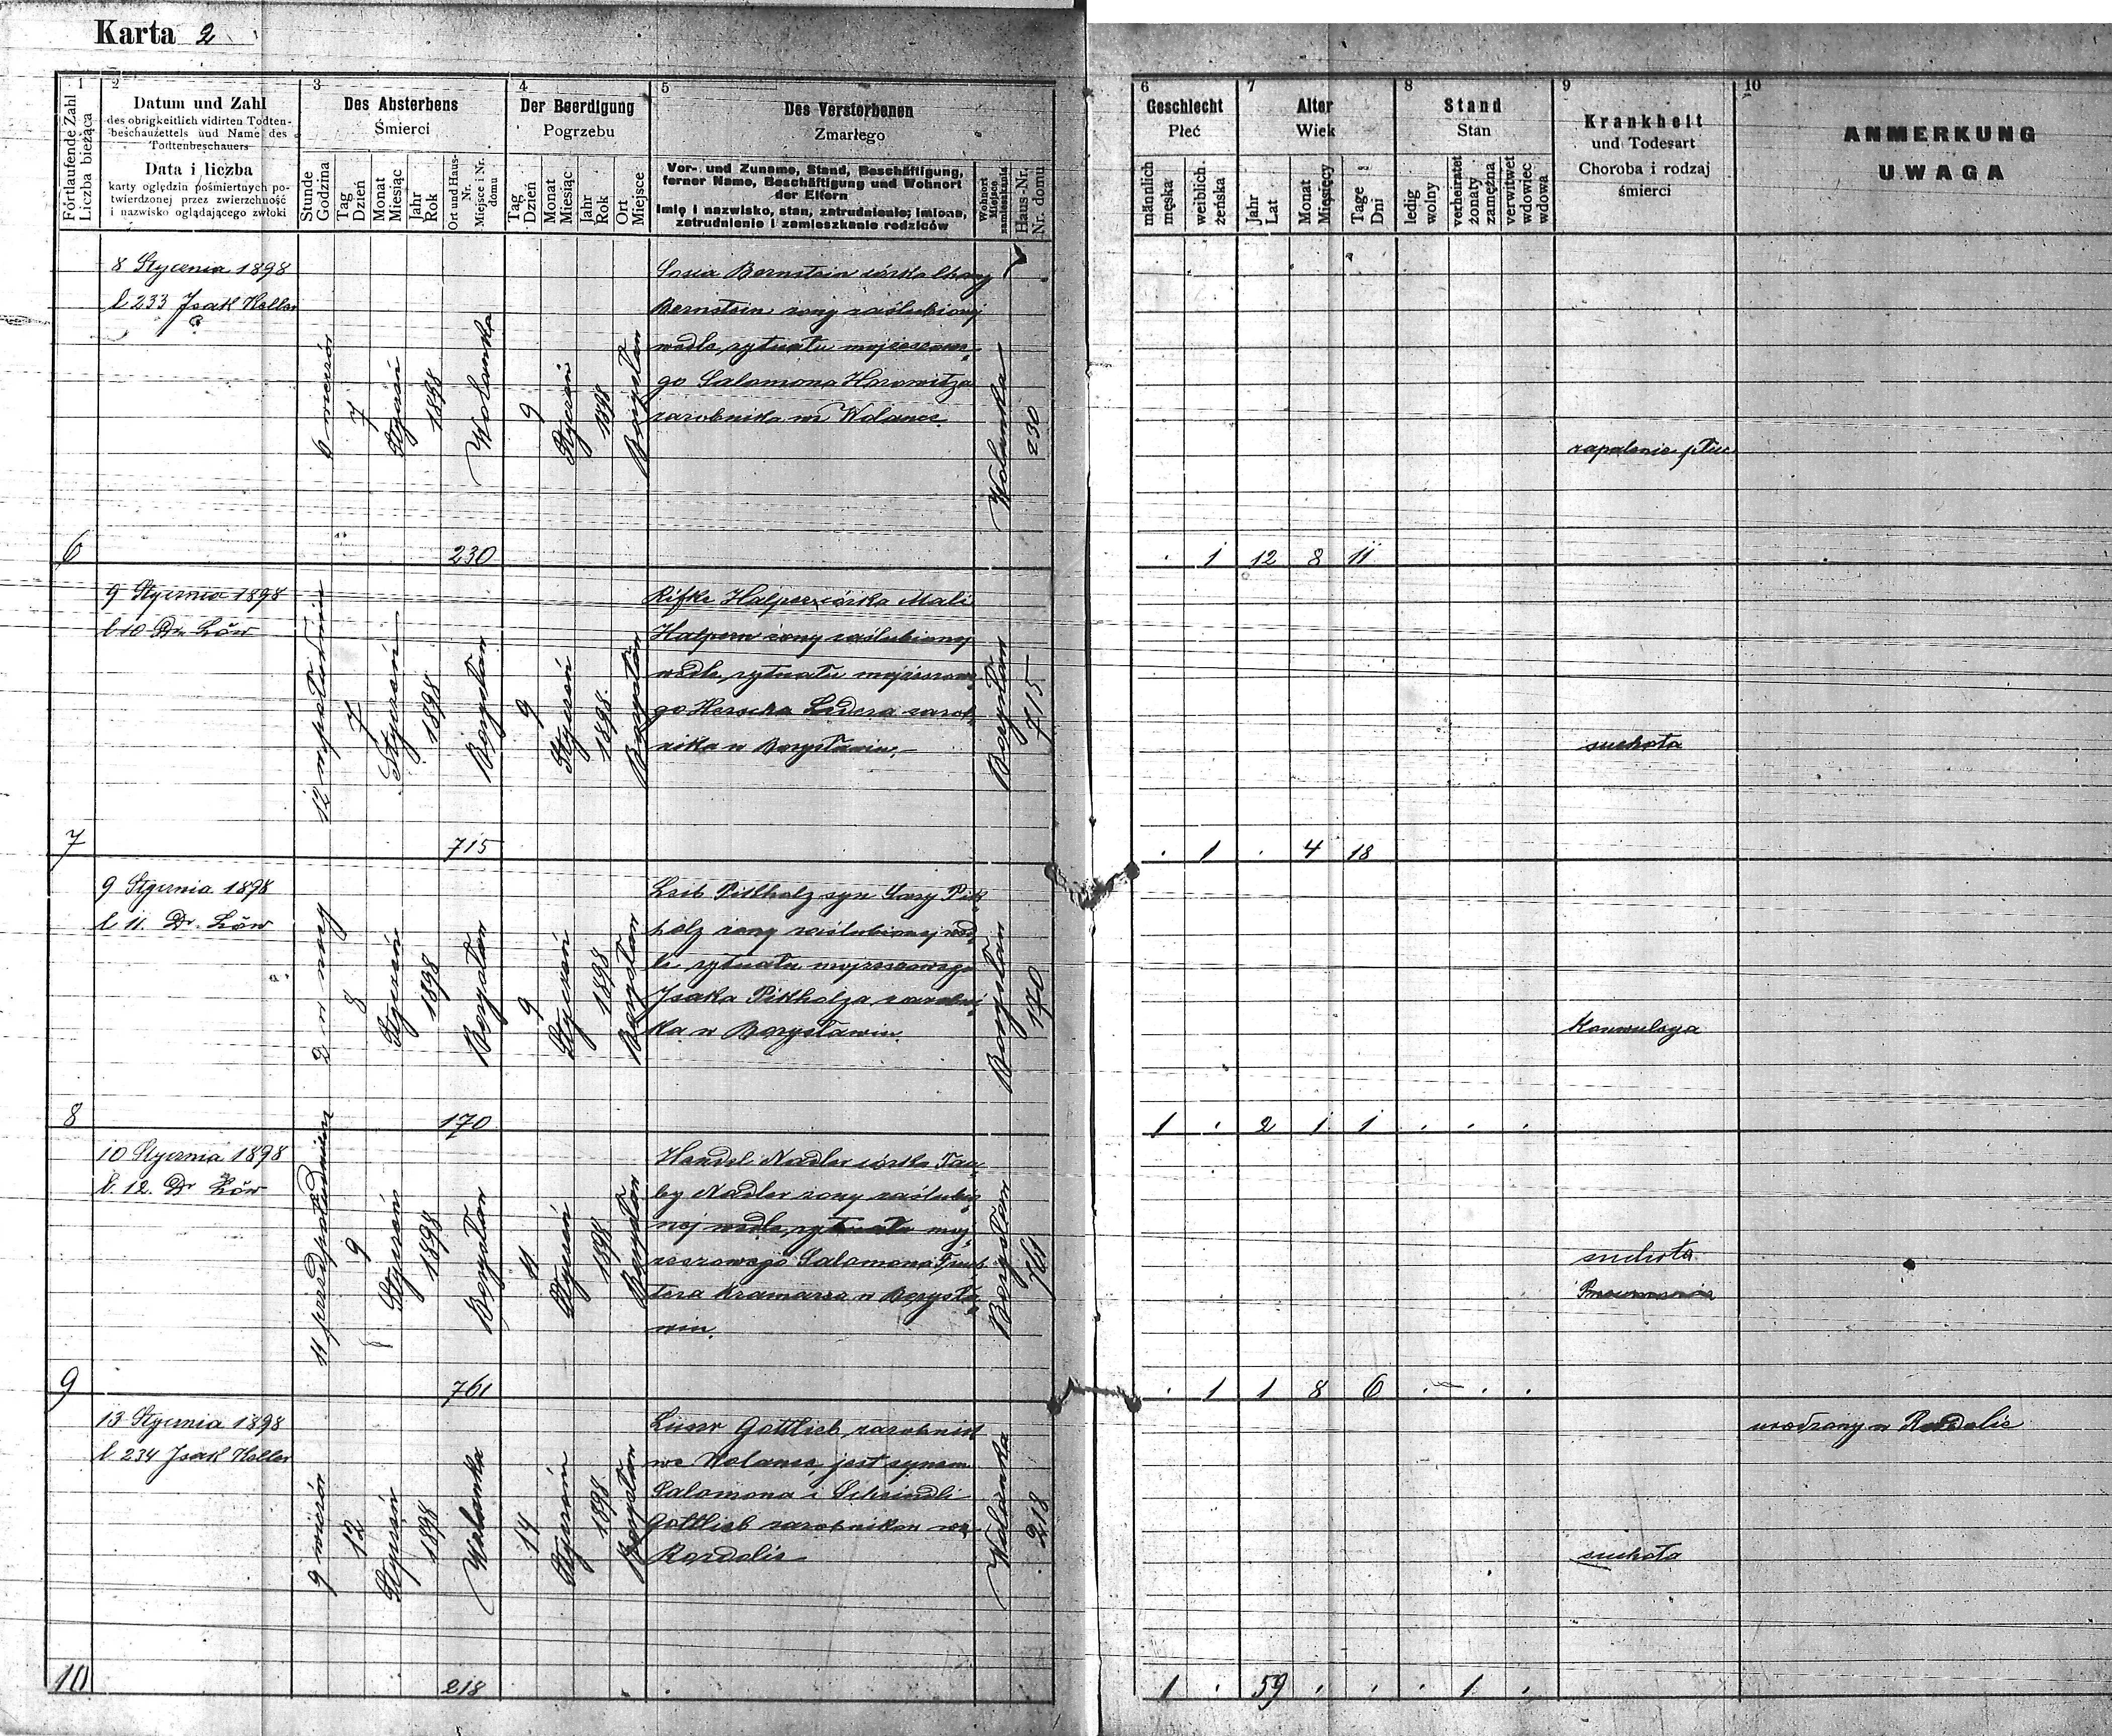 Karta 2
1
Fortlaufende Zahl
Liczba bieżąca
2
Datum und Zahl
des obrigkeitlich vidirten Todten-
beschauzettels und Name des
Todtenbeschauers
Data i liczba
karty oględzin pośmiertnych po-
twierdzonej przez zwierzchność
i nazwisko oglądającego zwłoki
3
Des Absterbens
Śmierci
Stunde
Godzina
Tag
Dzień
Monat
Miesiąc
Jahr
Rok
Ort und Haus-
Nr.
Miejsce i Nr.
domu
4
Der Beerdigung
Pogrzebu
Tag
Dzień
Monat
Miesiąc
Jahr
Rok
Ort
Miejsce
5
Des Verstorbenen
Zmarłego
Vor- und Zuname, Stand, Beschäftigung,
ferner Name, Beschäftigung und Wohnort
der Eltern
Imię i nazwisko, stan, zatrudnienie; imiona,
zatrudnienie i zamieszkanie rodziców
Wohnort
Miejsce
zamieszkania
Haus-Nr.
Nr. domu
6
Geschlecht
Płeć
männlich
męska
weiblich
żeńska
7
Alter
Wiek
Jahr
Lat
Monat
Miesięcy
Tage
Dni
8
Stand
Stan
ledig
wolny
verheiratet
żonaty
zamężna
verwitwet
wdowiec
wdowa
9
Krankheit
und Todesart
Choroba i rodzaj
śmierci
10
ANMERKUNG
UWAGA
6
8 Stycznia 1898
l 233 Isak Keller
6 wieczór
7
Styczeń
1898
Wolanka
230
9
Styczeń
1898
Borysław
Sosia Bernstein córka Chany
Bernstein żony zaślubionej
wedle rytuału mojżeszowe
go Salamona Horowitza
zarobnika we Wolance
Wolanka
230
1
12
8
11
zapalenie płuc
7
9 Stycznia 1898
l 10 Dr. Löw
12 w południe
7
Styczeń
1898
Borysław
715
9
Styczeń
1898.
Borysław
Rifke Halpern córka Mali
Halpern żony zaślubionej
wedle rytuału mojżeszowe
go Herscha Ledera zarob
nika w Borysławiu
Borysław
715
1
4
18
suchota
8
9 Stycznia 1898
l 11. Dr. Löw
2 w nocy
8
Styczeń
1898
Borysław
170
9
Styczeń
1898
Borysław
Leib Pikholz syn Sary Pik
holz żony zaślubionej wed
le rytuału mojżeszowego
Isaka Pikholza zarobni
ka w Borysławiu.
Borysław
170
1
2
1
1
Konwulsya
9
10 Stycznia 1898
l. 12. Dr Löw
11 przedpołudniem
9
Styczeń
1898
Borysław
761
11
Styczeń
1898
Borysław
Hendel Nadler córka Tau
by Nadler żony zaślubio
nej wedle rytuału moj
żeszowego Salamona
tera kramarza w Borysła
wiu.
Borysław
761
1
1
8
6
suchota
10
13 Stycznia 1898
l 234 Isak Keller
9 wieczór
12
Styczeń
1898
Wolanka
218
14
Styczeń
1898
Borysław
Lieser Gottlieb zarobnik
we Wolance, jest synem
Salamona i Scheindli
Gottlieb zarobników we
Rozdolie
Wolanka
218
1
59
1
suchota
urodzony w Rozdolie